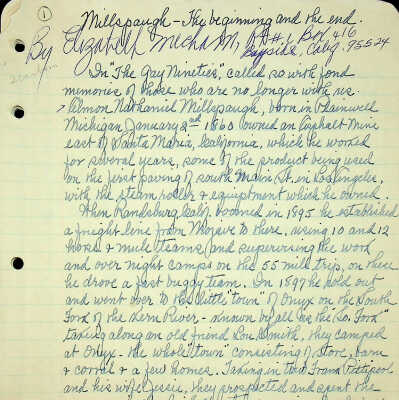 1
Millspaugh - The beginning and the end.
By Elizabeth Mecham, Rt #1 Box 416
Bayside, Calif. 95524
In "The Gay Nineties", called so with fond
memories of those who are no longer with us
Almon Nathaniel Millspaugh, born in Plainwell
Michigan, January 2nd 1860 owned an Asphalt Mine
east of Santa Maria, California, which he worked
for several years, some of the product being used
on the first paving of South Main St. in Los Angeles,
with the steam roller & equiptment which he owned.
When Randsburg, Calif. boomed in 1895 he established
a freight line from Mojave to there, using 10 and 12
horse & mule teams, and supervising the work
and over night camps on the 55 mile trip, on there
he drove a fast buggy team. In 1897 he sold out
and went over to the little "town" of Onyx on the South
Fork of the Kern River - known by all as the "So. Fork"
taking along an old friend Lou Smith, they camped
at Onyx - the whole "town" consisting of store, barn
& corral & a few homes. Taking in tow Frank
and his wife Jessie, they prospected and spent the